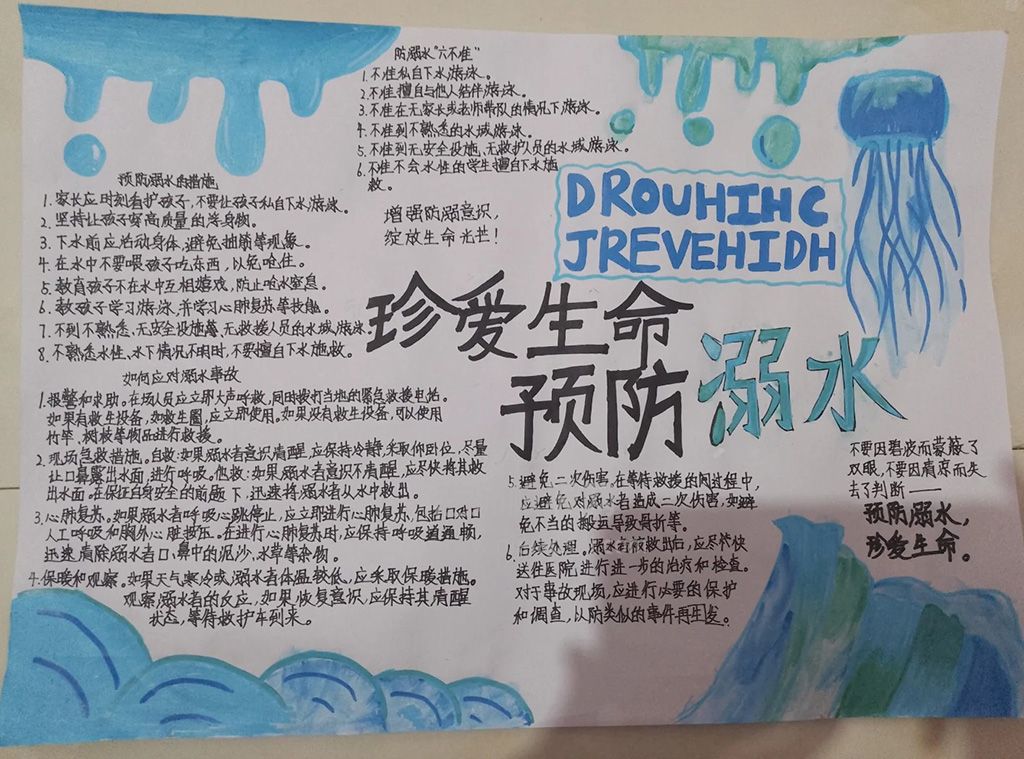 防溺水“六不准”
1.不准私自下水游泳。
2.不准擅自与他人结伴游泳。
3.不准在无家长或老师带队的情况下游泳。
4.不准到不熟悉的水域游泳。
5.不准到无安全设施、无救护人员的水域游泳。
6.不准不会水性的学生擅自下水施
救。
预防溺水的措施
1.家长应时刻看护孩子,不要让孩子私自下水游泳。
2.坚持让孩子穿高质量的浮身物。
3.下水前应活动身体,避免抽筋等现象。
4.在水中不要喂孩子吃东西,以免呛住。
5.教育孩子不在水中互相嬉戏,防止呛水窒息。
6.教孩子学习游泳,并学习心肺复苏等技能。
7.不到不熟悉、无安全设施、无救援人员的水域游泳。
8.不熟悉水性、水下情况不明时,不要擅自下水施救。
增强防溺意识,
绽放生命光芒!
DROUHIHC
JREVEHIDH
珍爱生命
预防溺水
如何应对溺水事故
1.报警和求助。在场人员应立即大声呼救,同时拨打当地的紧急救援电话。
如果有救生设备,如救生圈,应立即使用。如果没有救生设备,可以使用
竹竿、树枝等物品进行救援。
2.现场急救措施。自救:如果溺水者意识清醒,应保持冷静,采取仰卧位,尽量
让口鼻露出水面,进行呼吸。他救:如果溺水者意识不清醒,应尽快将其救
出水面。在保证自身安全的前题下,迅速将溺水者从水中救出。
3.心肺复苏。如果溺水者呼吸心跳停止,应立即进行心肺复苏,包括口对口
人工呼吸和胸外心脏按压。在进行心肺复苏时,应保持呼吸道通畅,
迅速清除溺水者口、鼻中的泥沙、水草等杂物。
4.保暖和观察。如果天气寒冷或溺水者体温较低,应采取保暖措施。
观察溺水者的反应,如果恢复意识,应保持其清醒
状态,等待救护车到来。
5.避免二次伤害。在等待救援的间过程中,
应避免对溺水者造成二次伤害,如避
免不当的搬运导致骨折等。
6.后续处理。溺水者被救出后,应尽快
送往医院进行进一步的治疗和检查。
对于事故现场,应进行必要的保护
和调查,以防类似的事件再生发。
不要因碧波而蒙蔽了
双眼,不要因清凉而失
去了判断——
预防溺水,
珍爱生命。